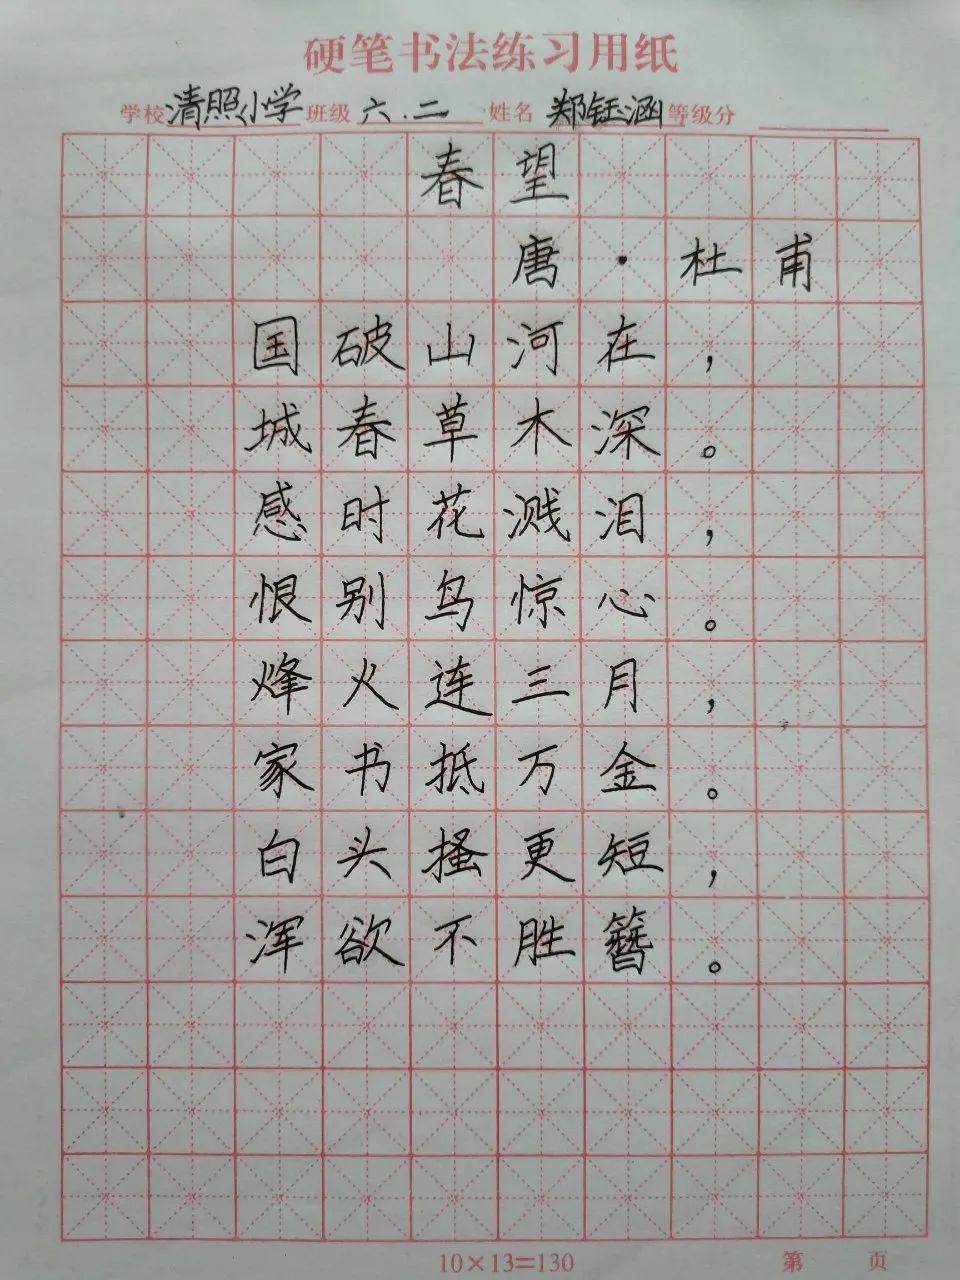 硬笔书法练习用纸
学校清照小学班级六.二姓名郑钰涵等级分
春望
唐·杜甫
国破山河在，
城春草木深。
感时花溅泪，
恨别鸟惊心。
烽火连三月，
家书抵万金。
白头搔更短，
浑欲不胜簪。
10×13=130 第 页